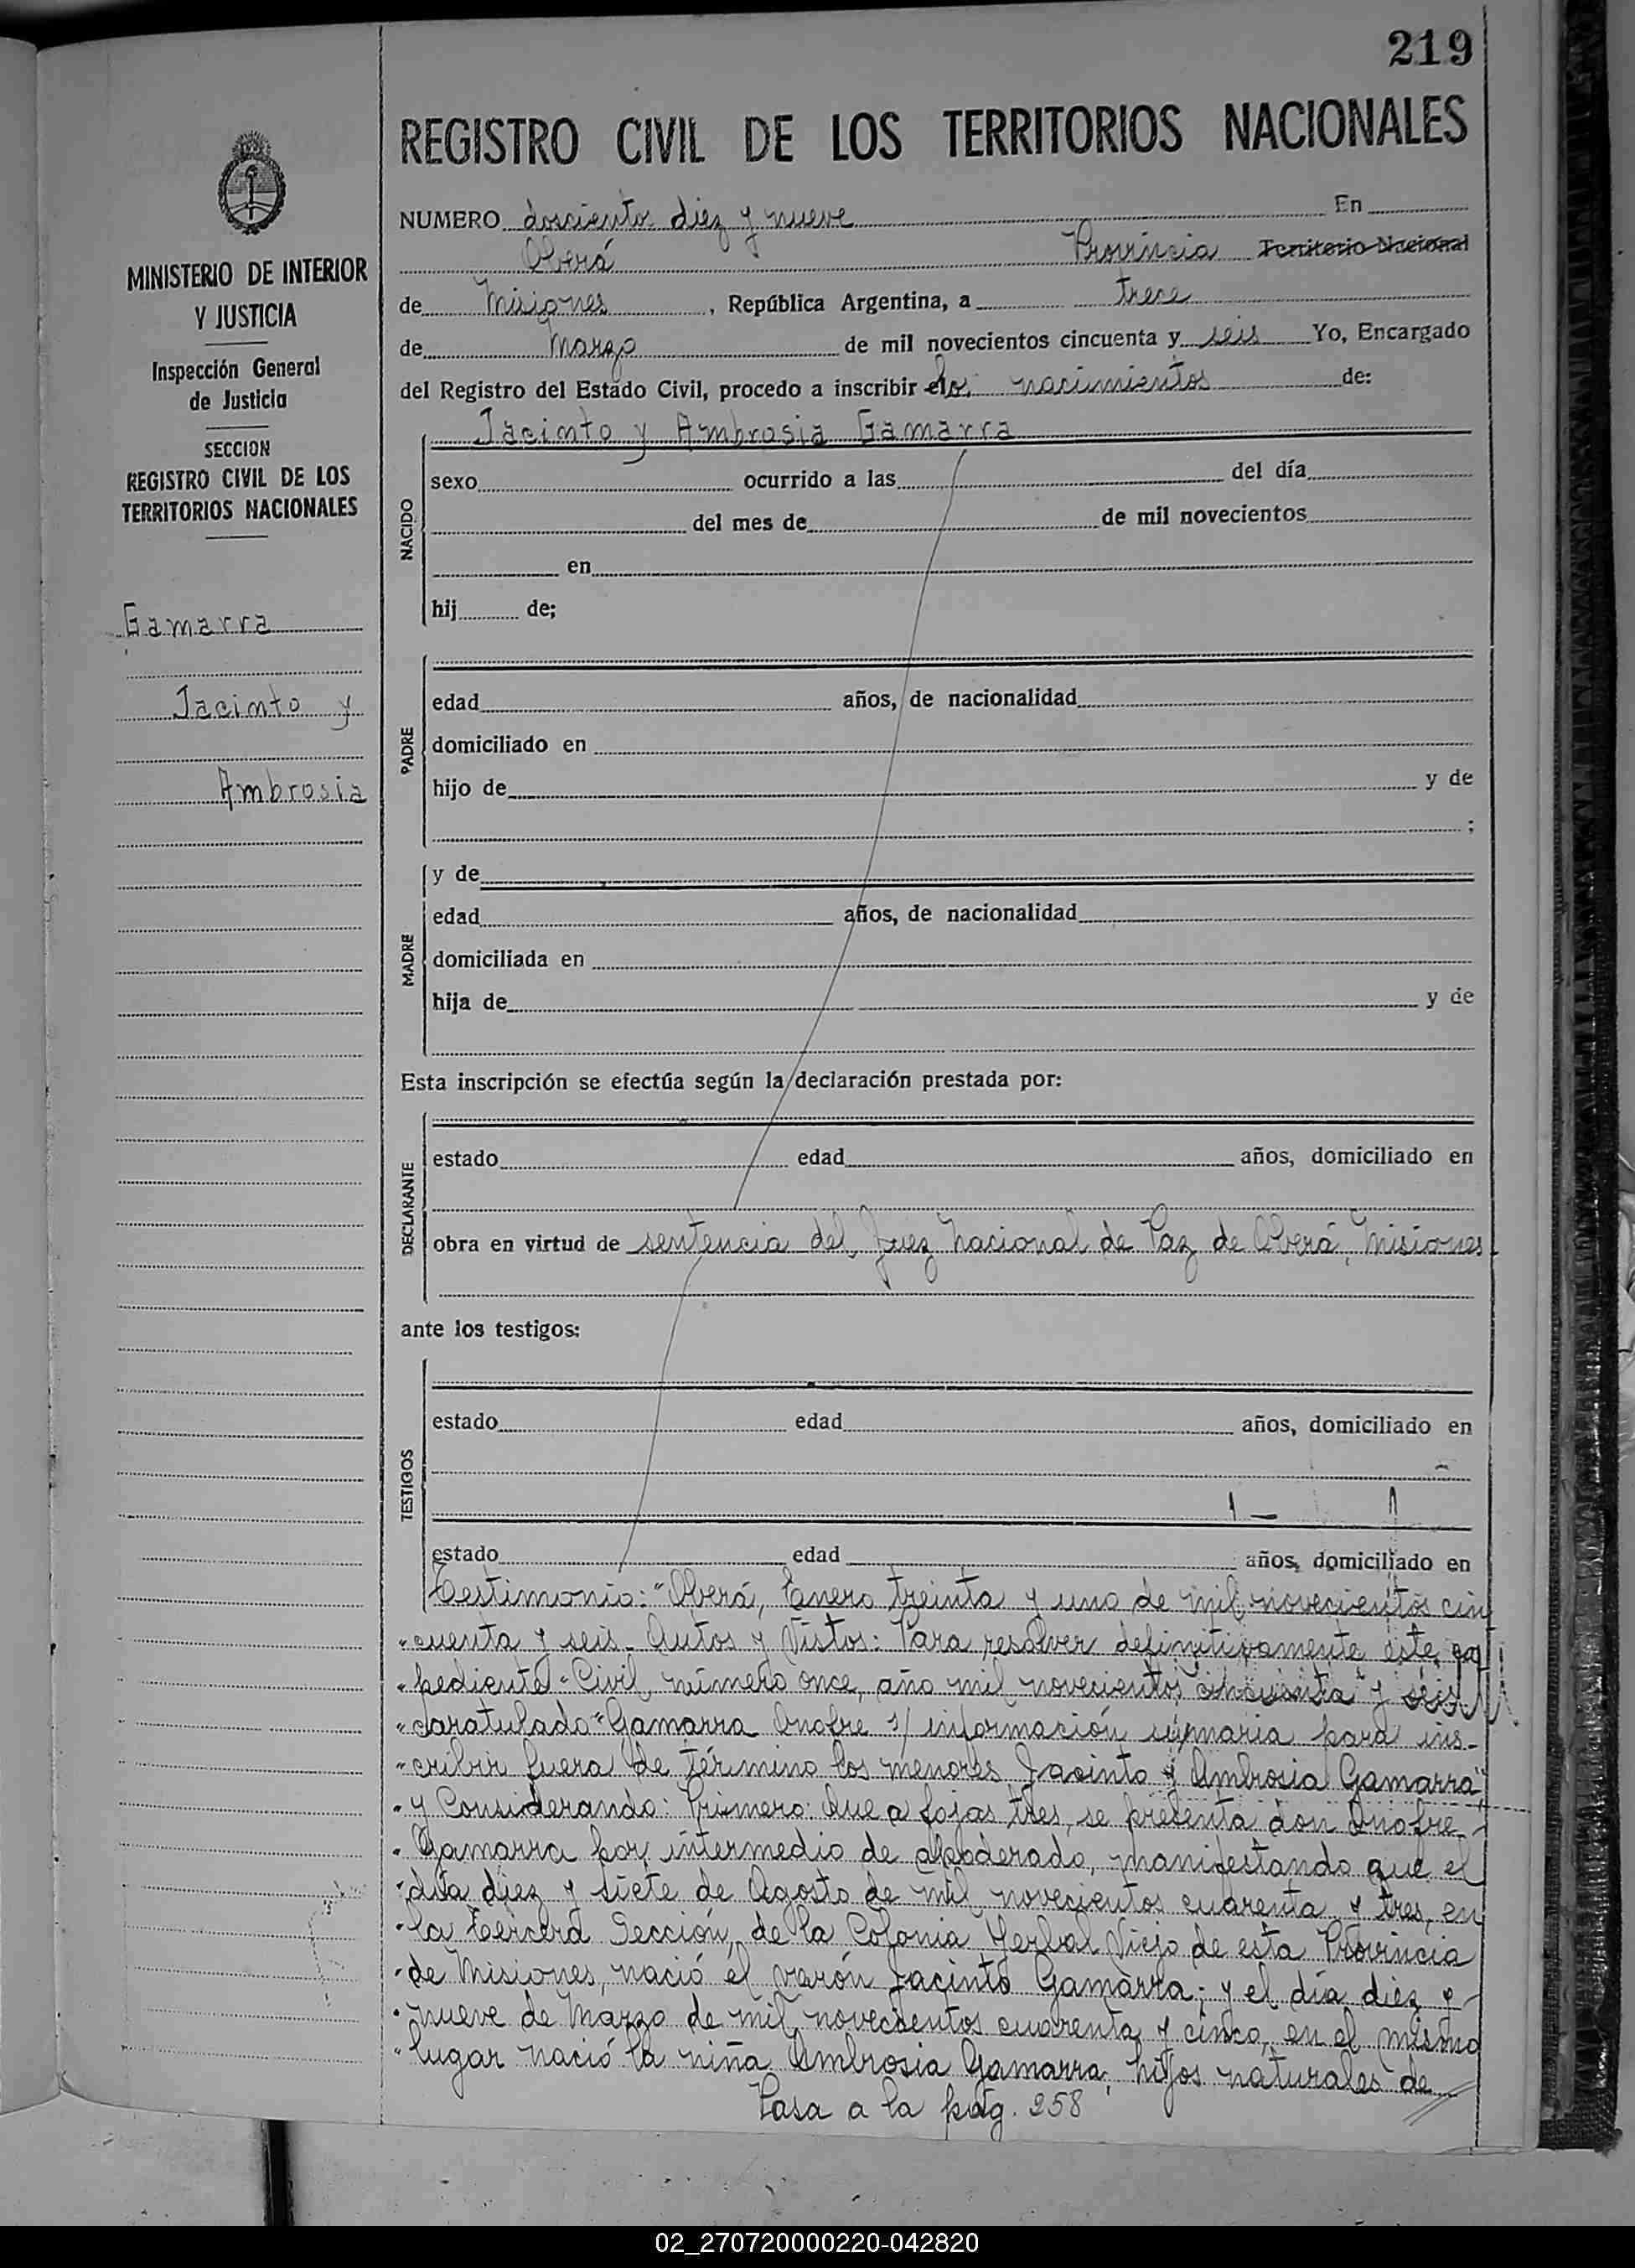 219
REGISTRO CIVIL DE LOS TERRITORIOS NACIONALES
MINISTERIO DE INTERIOR
Y JUSTICIA
Inspección General
de Justicia
SECCION
REGISTRO CIVIL DE LOS
TERRITORIOS NACIONALES
Gamarra
Jacinto y
Ambrosia
NUMERO dosciento diez y nueve En
Oberá Provincia Territorio Nacional
de Misiones, República Argentina, a trece
de Marzo de mil novecientos cincuenta y seis Yo, Encargado
del Registro del Estado Civil, procedo a inscribir los nacimientos de:
Jacinto y Ambrosia Gamarra
NACIDO
sexo ocurrido a las del día
del mes de de mil novecientos
en
hij de;
PADRE
edad años, de nacionalidad
domiciliado en
hijo de y de
;
MADRE
y de
edad años, de nacionalidad
domiciliada en
hija de y de
Esta inscripción se efectúa según la declaración prestada por:
DECLARANTE
estado edad años, domiciliado en
obra en virtud de sentencia del Juez Nacional de Paz de Oberá, Misiones
ante los testigos:
TESTIGOS
estado edad años, domiciliado en
estado edad años, domiciliado en
Testimonio: "Oberá, Enero treinta y uno de mil novecientos cin
"cuenta y seis. Autos y Vistos: Para resolver definitivamente este ex
"pediente "Civil, número once, año mil novecientos cincuenta y seis
"caratulado "Gamarra Onofre s/ información sumaria para ins-
"cribir fuera de término los menores Jacinto y Ambrosia Gamarra"
"y Considerando: Primero: Que a fojas tres, se presenta don Onofre
"Gamarra por intermedio de apoderado, manifestando que el
"día diez y siete de Agosto de mil novecientos cuarenta y tres, en
"la Tercera Sección, de la Colonia Yerbal Viejo de esta Provincia
"de Misiones, nació el varón Jacinto Gamarra; y el día diez y
"nueve de Marzo de mil novecientos cuarenta y cinco, en el mismo
"lugar nació la niña Ambrosia Gamarra; hijos naturales de
Pasa a la pág. 258
02_270720000220-042820